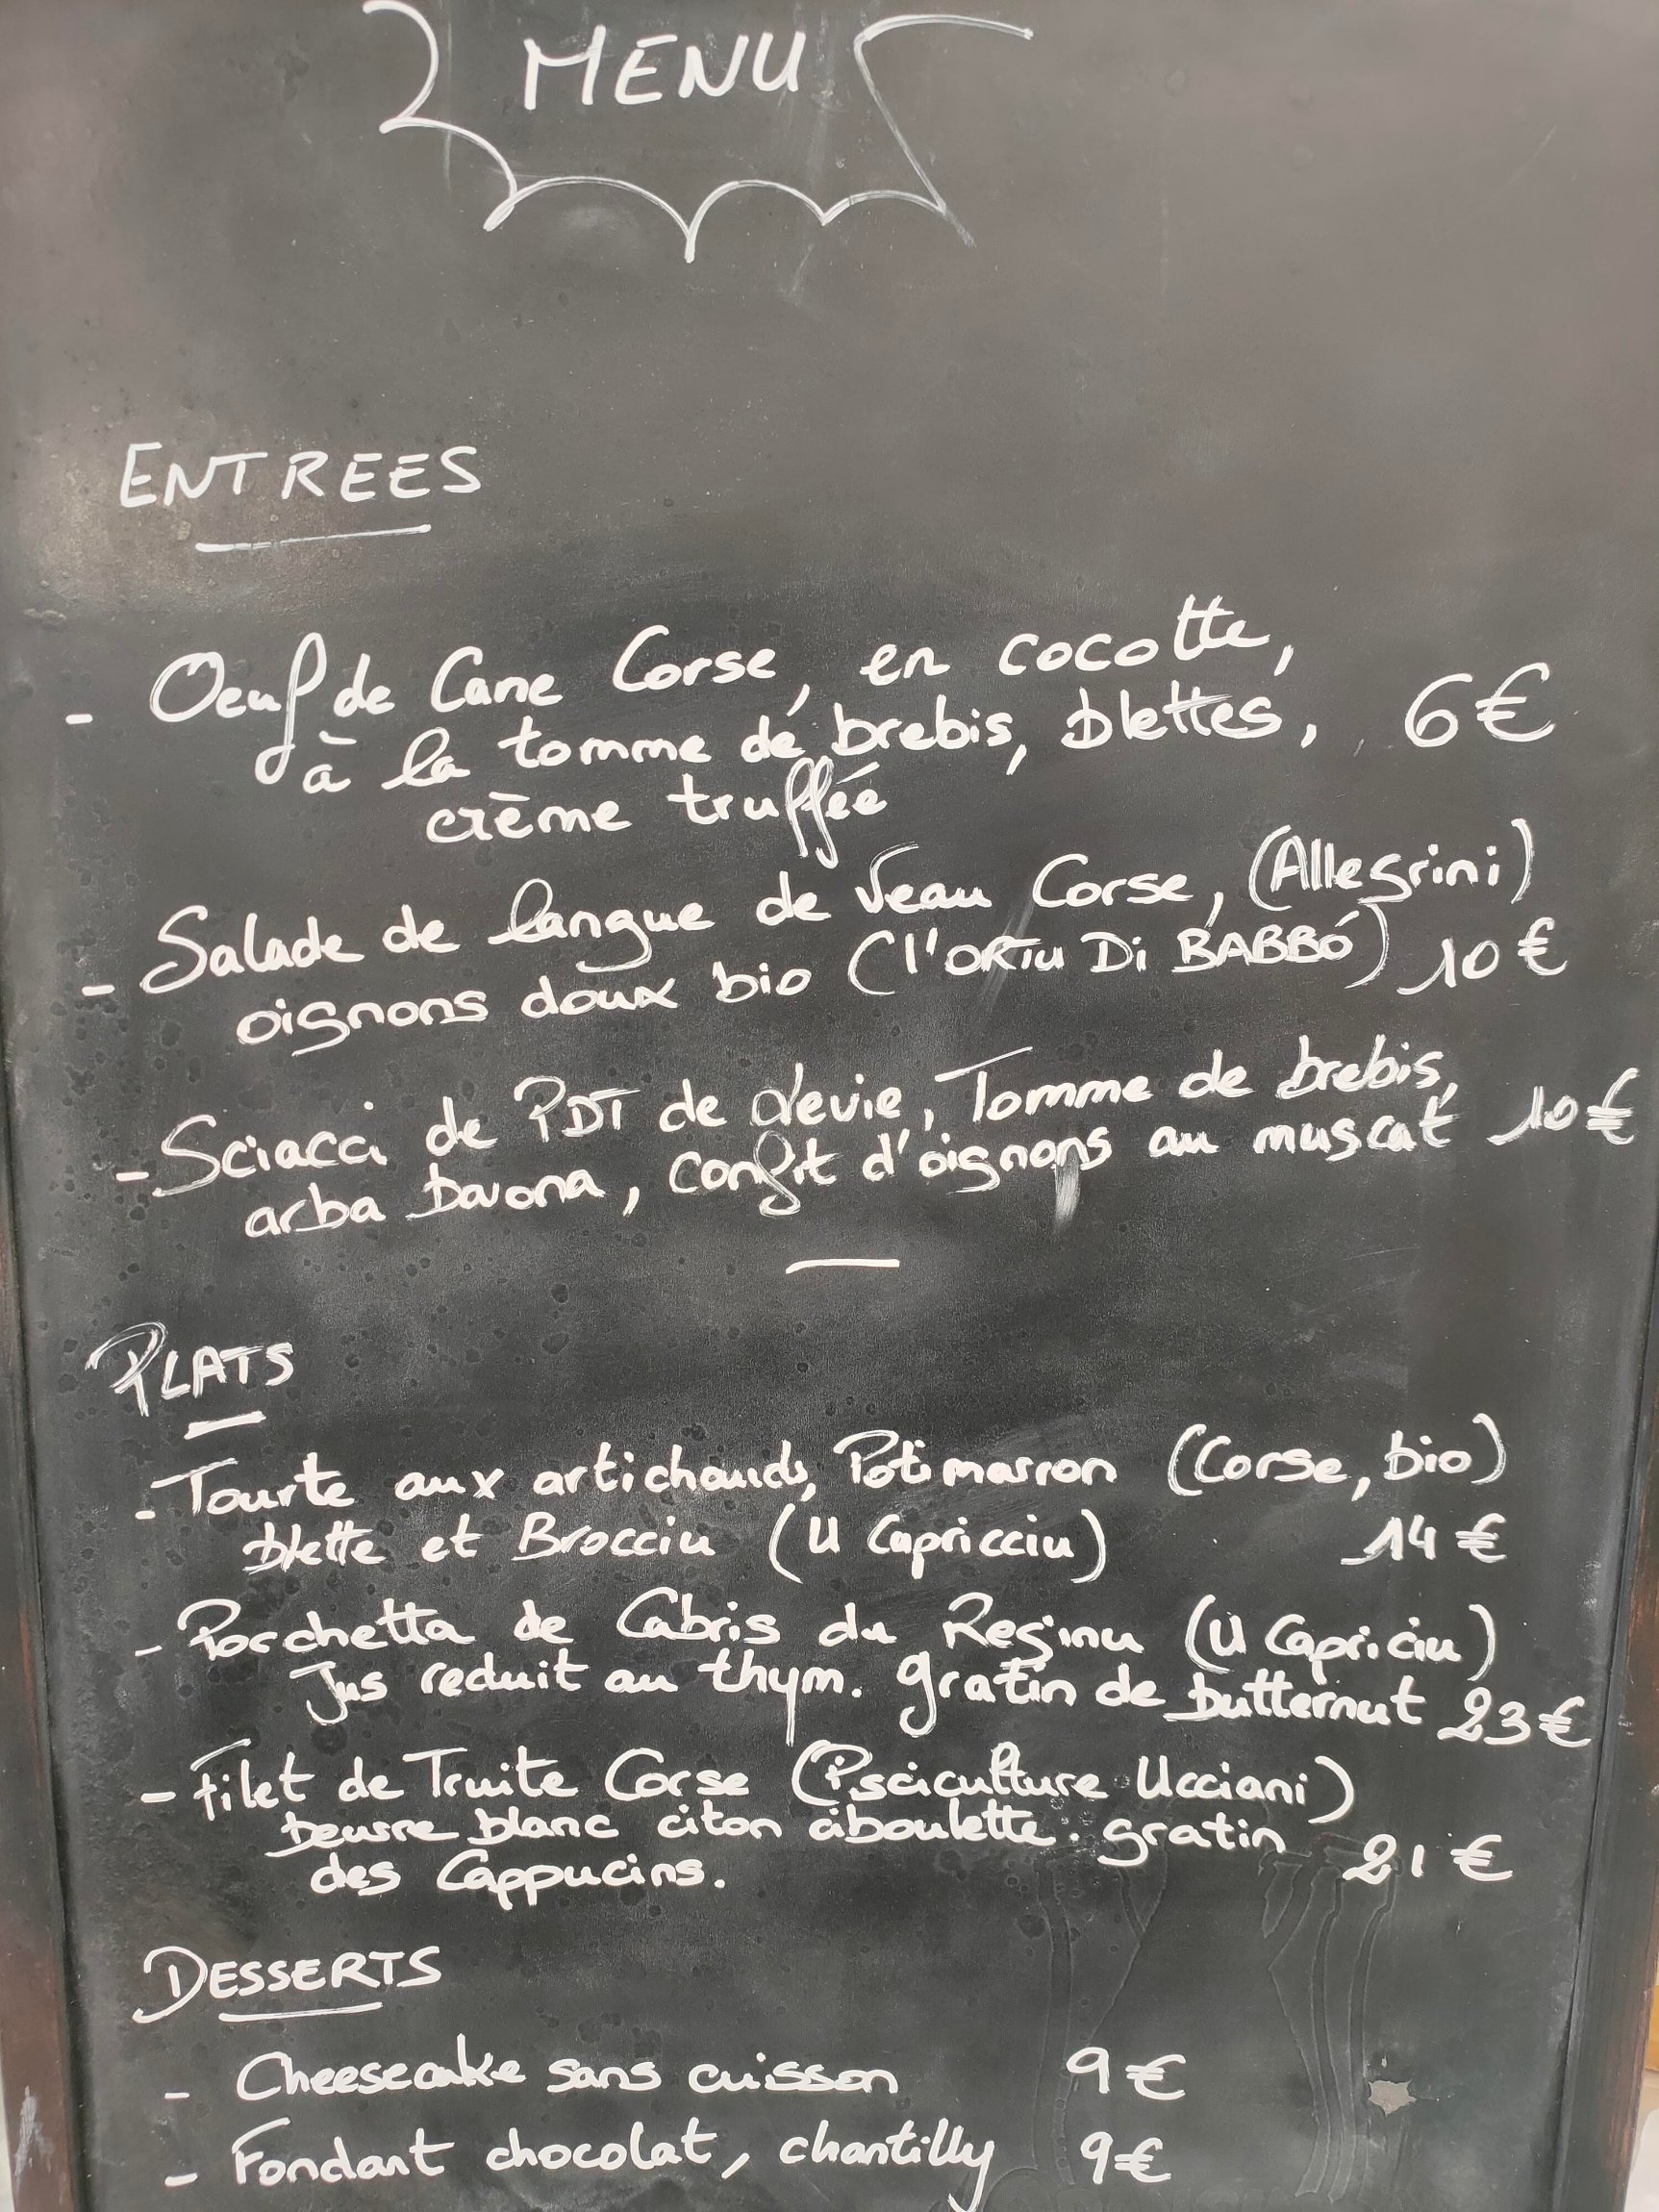 MENU
ENTREES
- Oeuf de Cane Corse, en cocotte,
à la tomme de brebis, blettes, 6€
crème truffée
- Salade de langue de Veau Corse, (Allegrini)
oignons doux bio (l'ORTU Di BABBÓ) 10€
- Sciacci de PDT de Levie, Tomme de brebis,
arba barona, confit d'oignons au muscat 10€
PLATS
- Tourte aux artichauds, Potimarron (Corse, bio)
blette et Brocciu (U Capricciu) 14€
- Porchetta de Cabris du Reginu (U Capriciu)
Jus reduit au thym. gratin de butternut 23€
- Filet de Truite Corse (Psciculture Ucciani)
beurre blanc citon ciboulette. gratin 21€
des Cappucins.
DESSERTS
- Cheesecake sans cuisson 9€
- Fondant chocolat, chantilly 9€